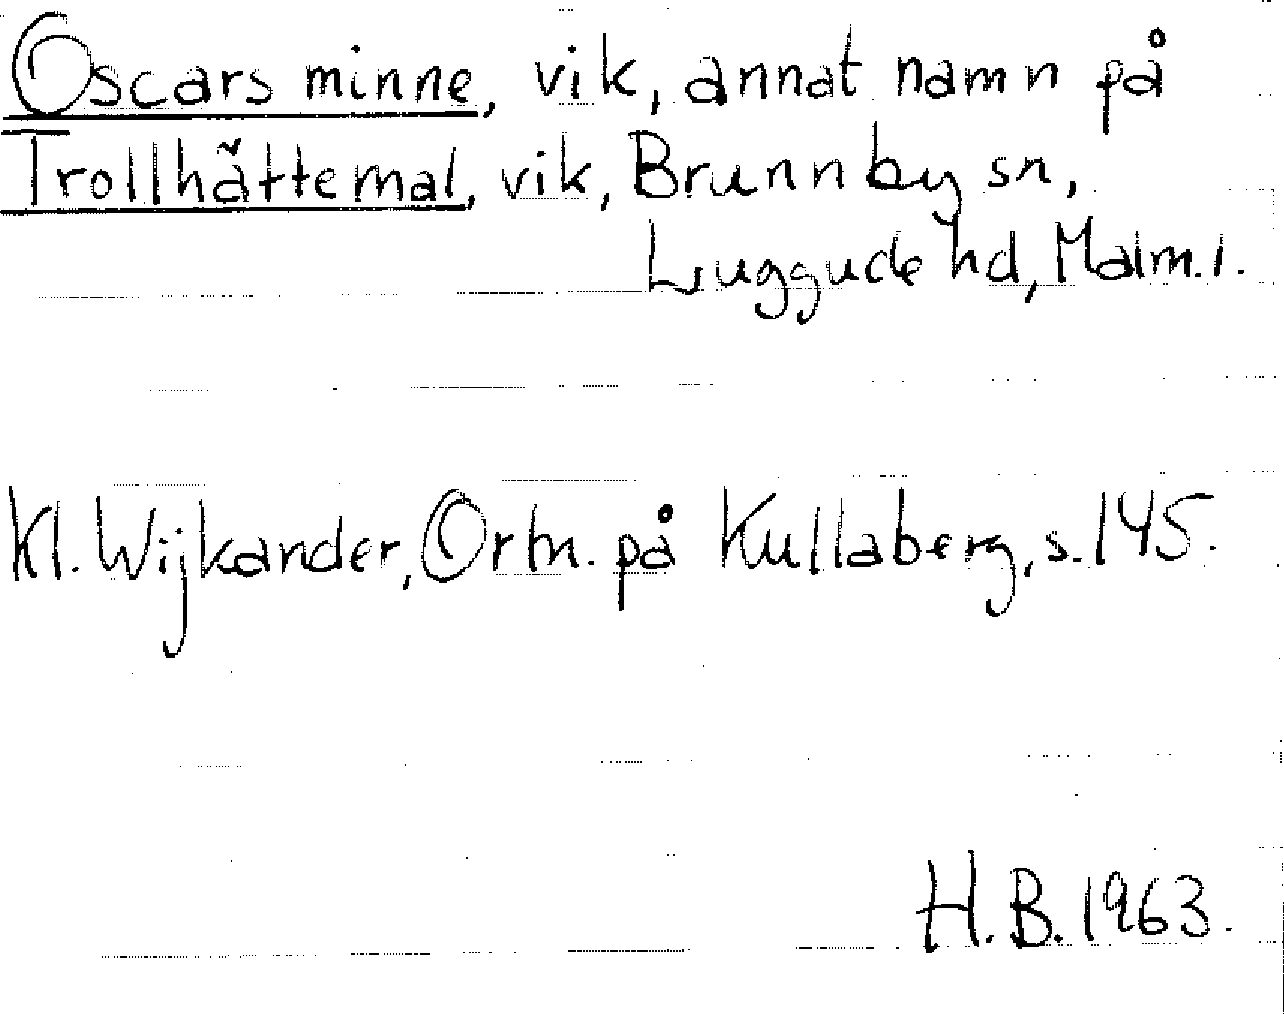 Oscars minne, vik, annat namn på
Trollhättemal, vik, Brunnby sn,
Luggude hd, Malm. l.
Kl. Wijkander, Ortn. på Kullaberg, s. 145.
H.B. 1963.